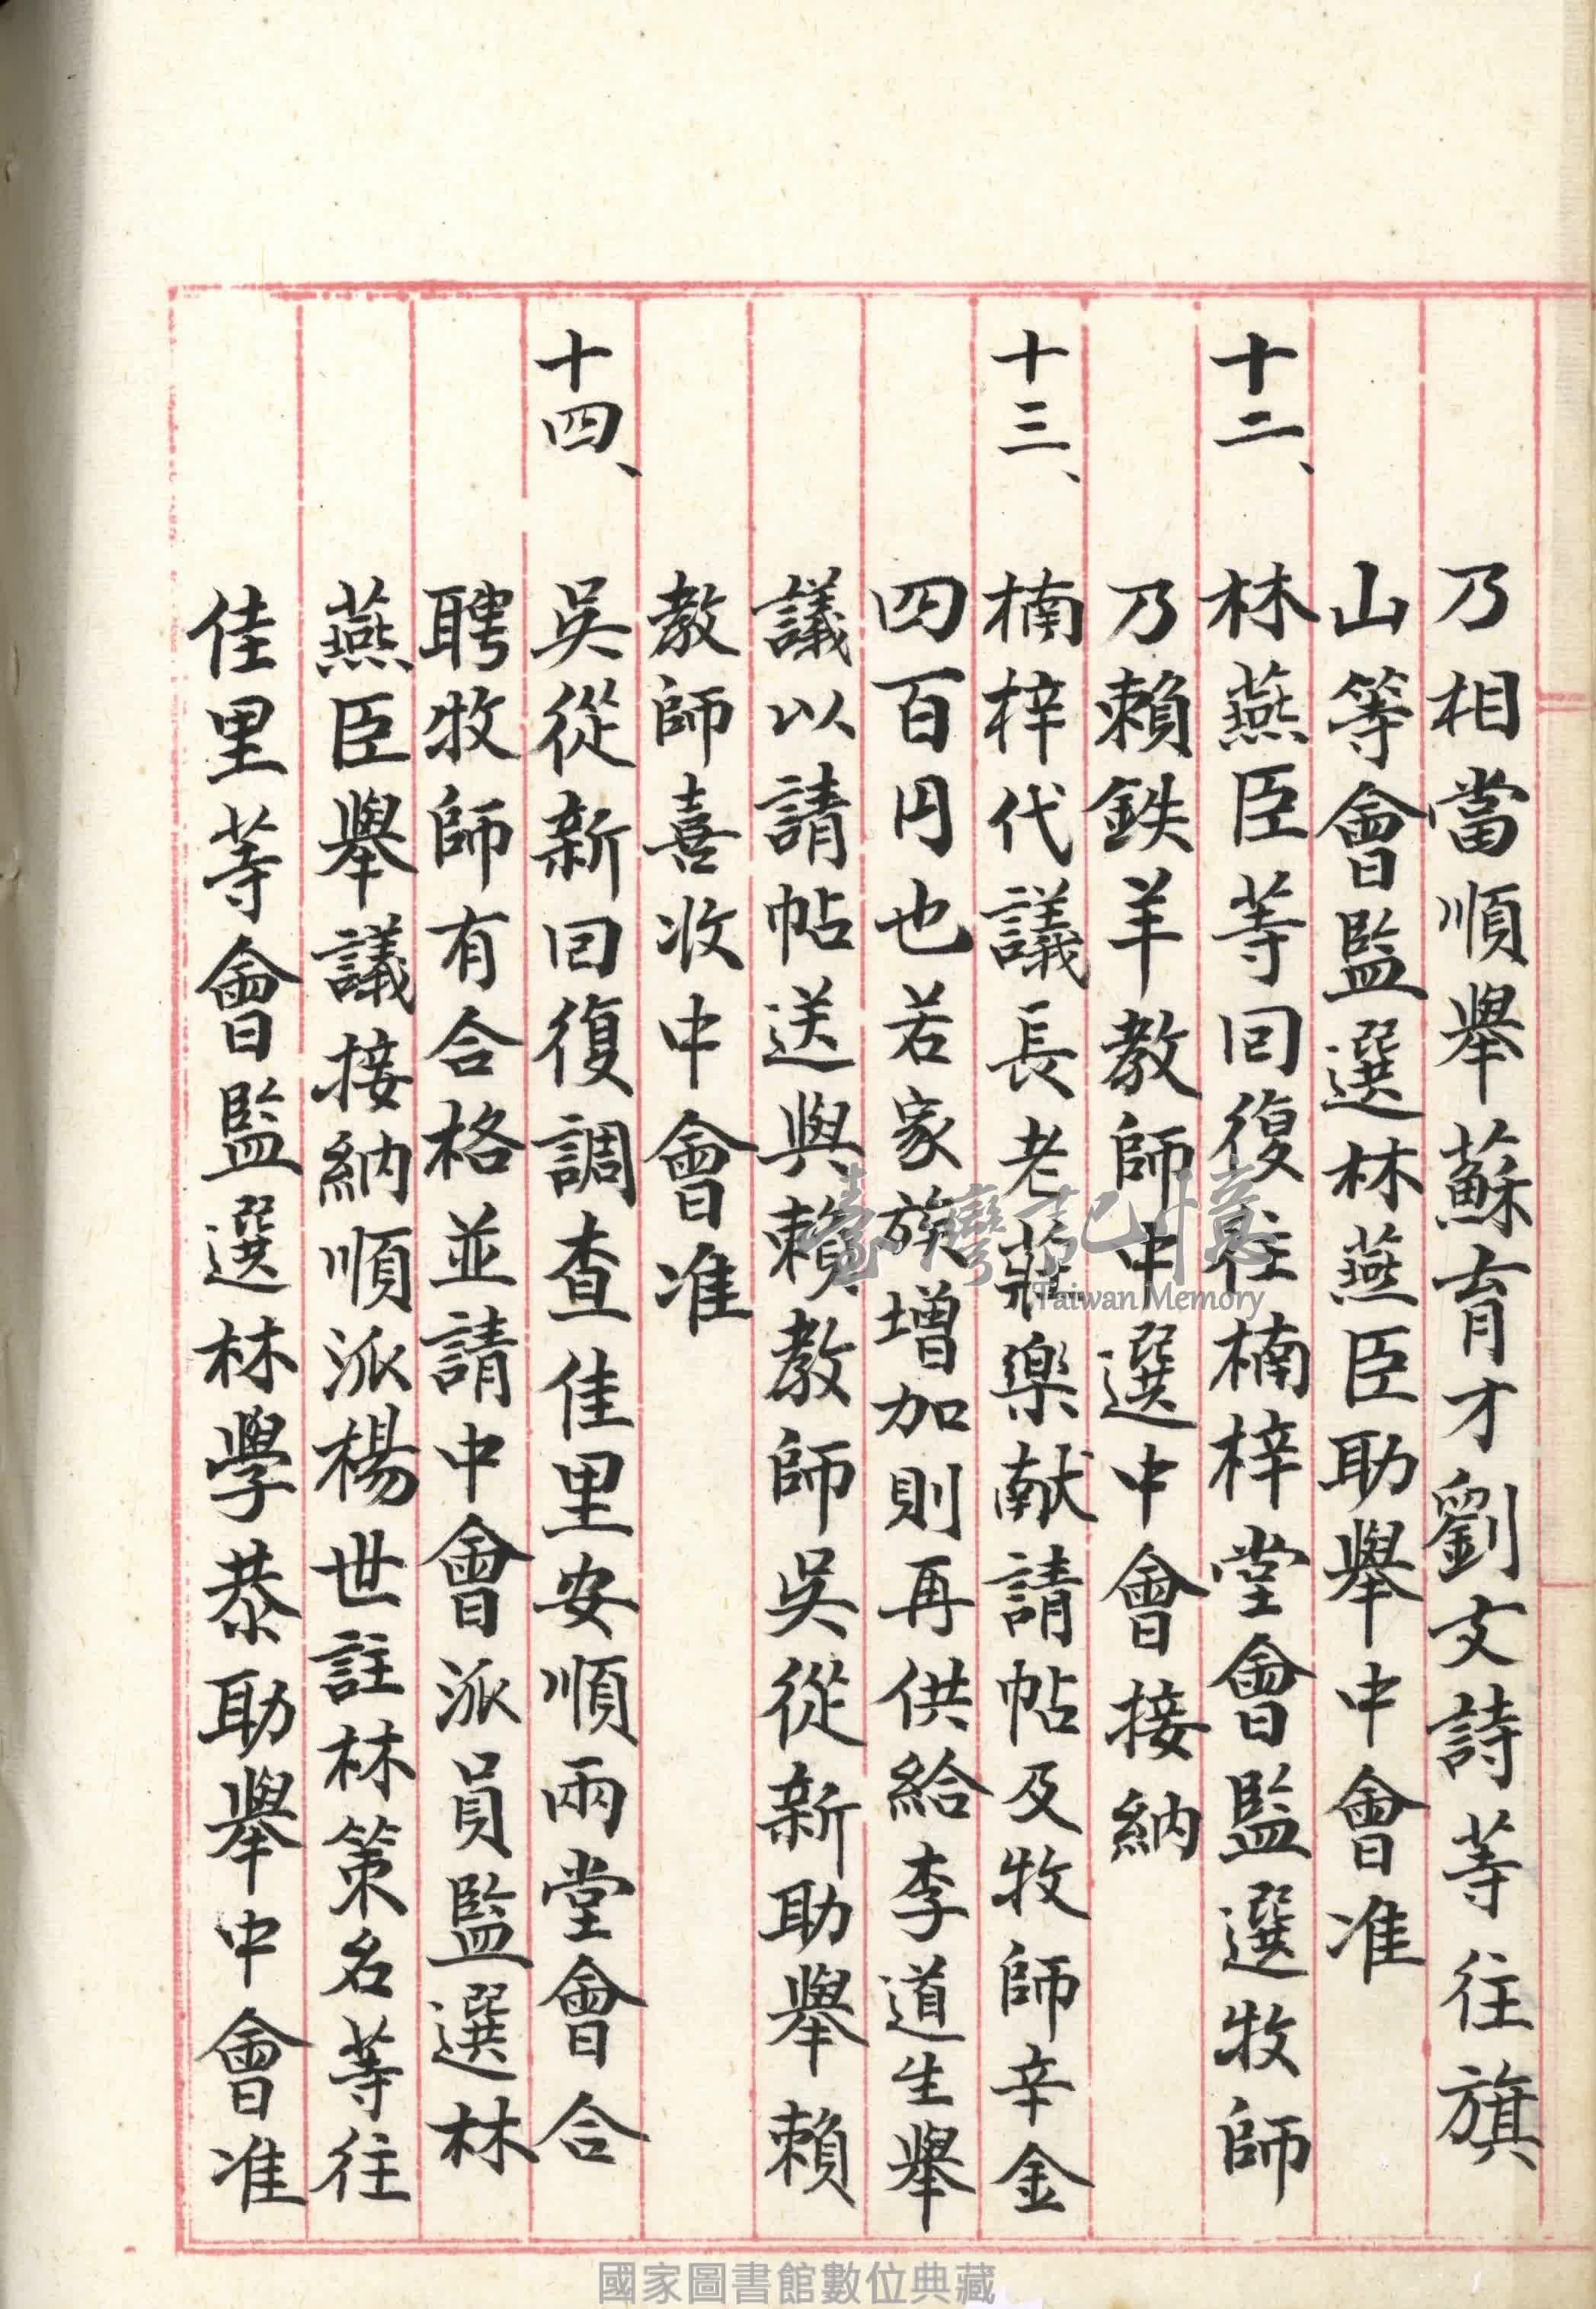 乃相當順舉蘇育才劉文詩等往旗
山等會監選林燕臣助舉中會准
十二、林燕臣等回復往楠梓堂會監選牧師
乃賴鉄羊教師中選中會接納
十三、楠梓代議長老莊樂献請帖及牧師辛金
四百円也若家族增加則再供給李道生舉
議以請帖送與賴教師吳從新助舉賴
教師喜收中會准
十四、吳從新回復調查佳里安順兩堂會合
聘牧師有合格並請中會派員監選林
燕臣舉議接納順派楊世註林策名等往
佳里等會監選林學恭助舉中會准
臺灣記憶
Taiwan Memory
國家圖書館數位典藏